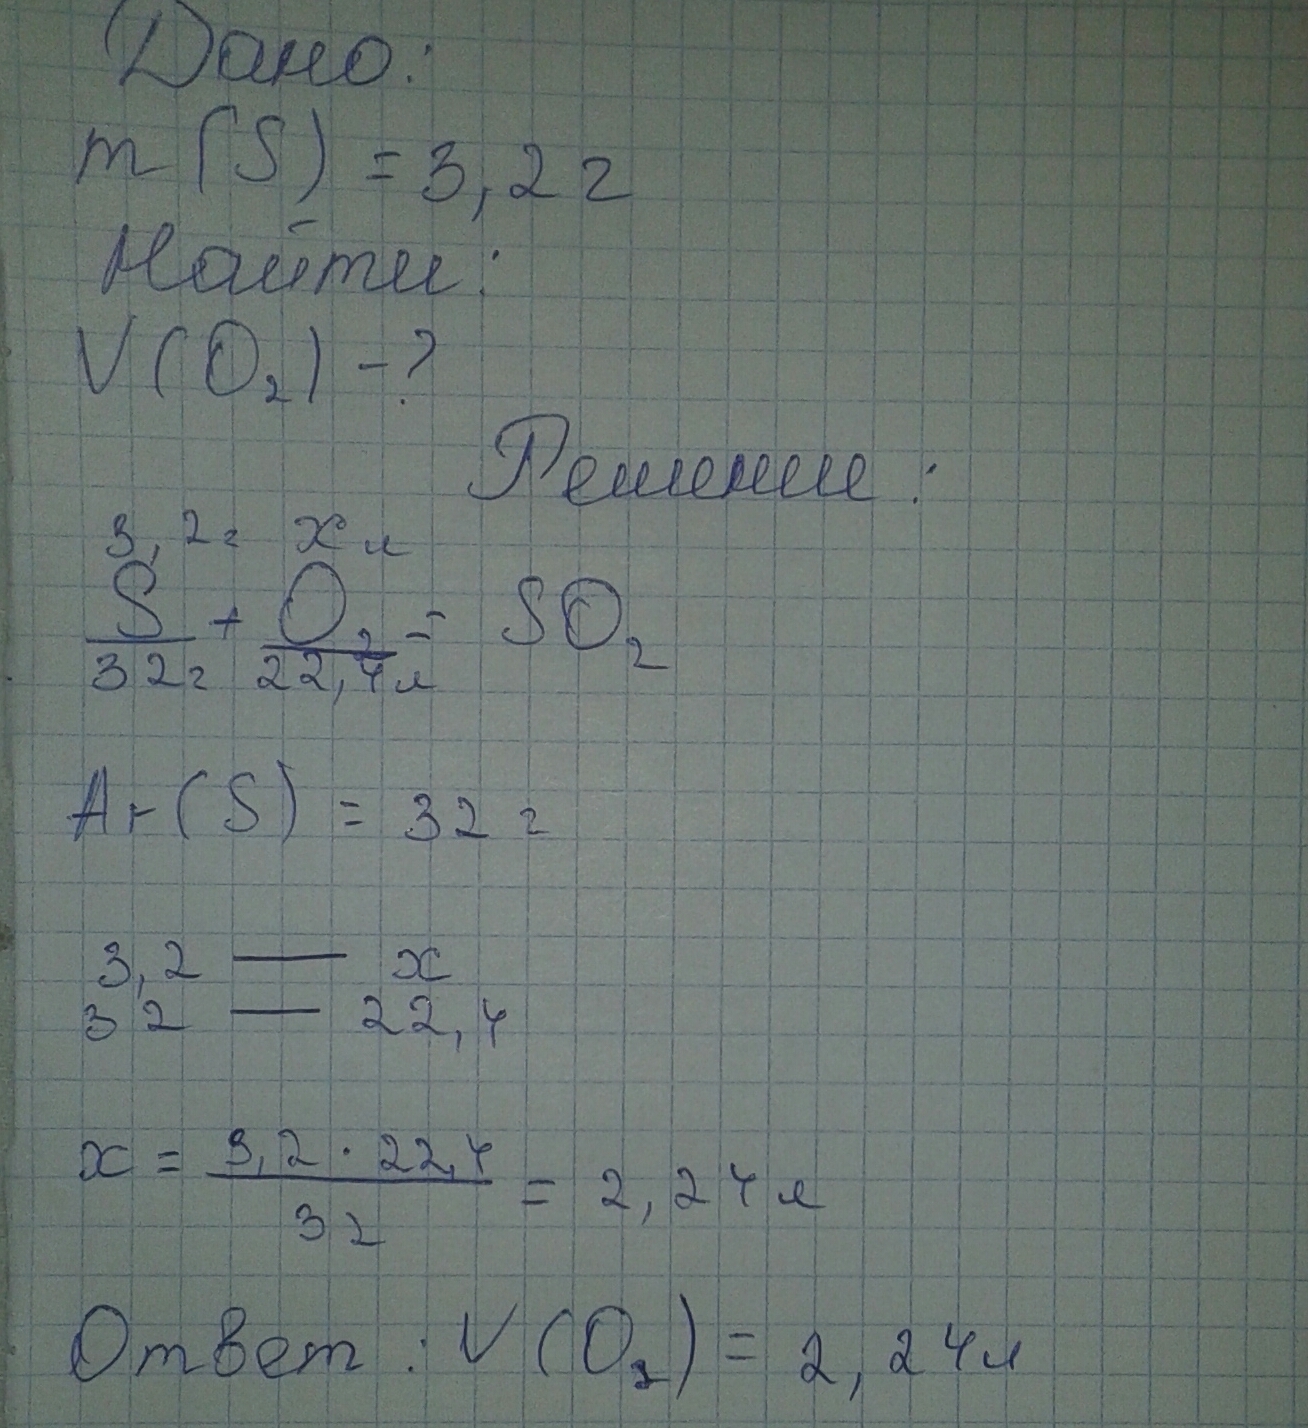 Дано:
m(S) = 3,2 г
Найти:
V(O₂) - ?
Решение:
3,2г x л
S + O₂ = SO₂
32г 22,4л
Ar(S) = 32 г
3,2 — x
32 — 22,4
x = 3,2 · 22,4 / 32 = 2,24 л
Ответ: V(O₂) = 2,24л